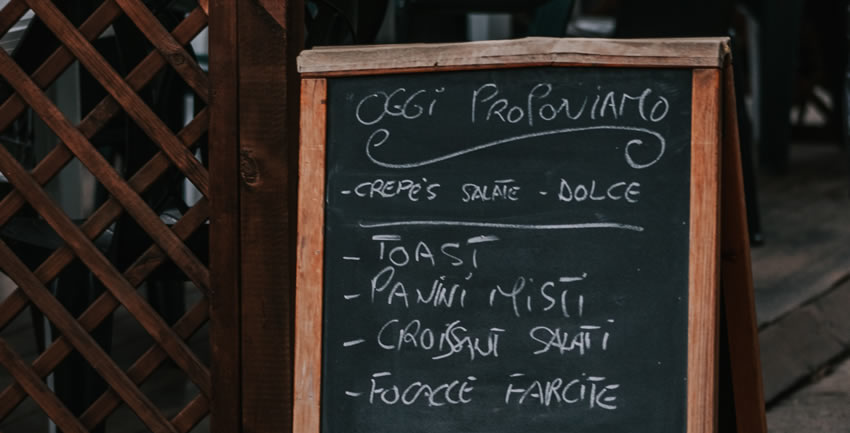 OGGi PROPONiAMO
-CREPE'S SALATE - DOLCE
- TOAST
- PANiNi MiSTi
- CROiSSANT SALATi
- FOCACCE FARCiTE